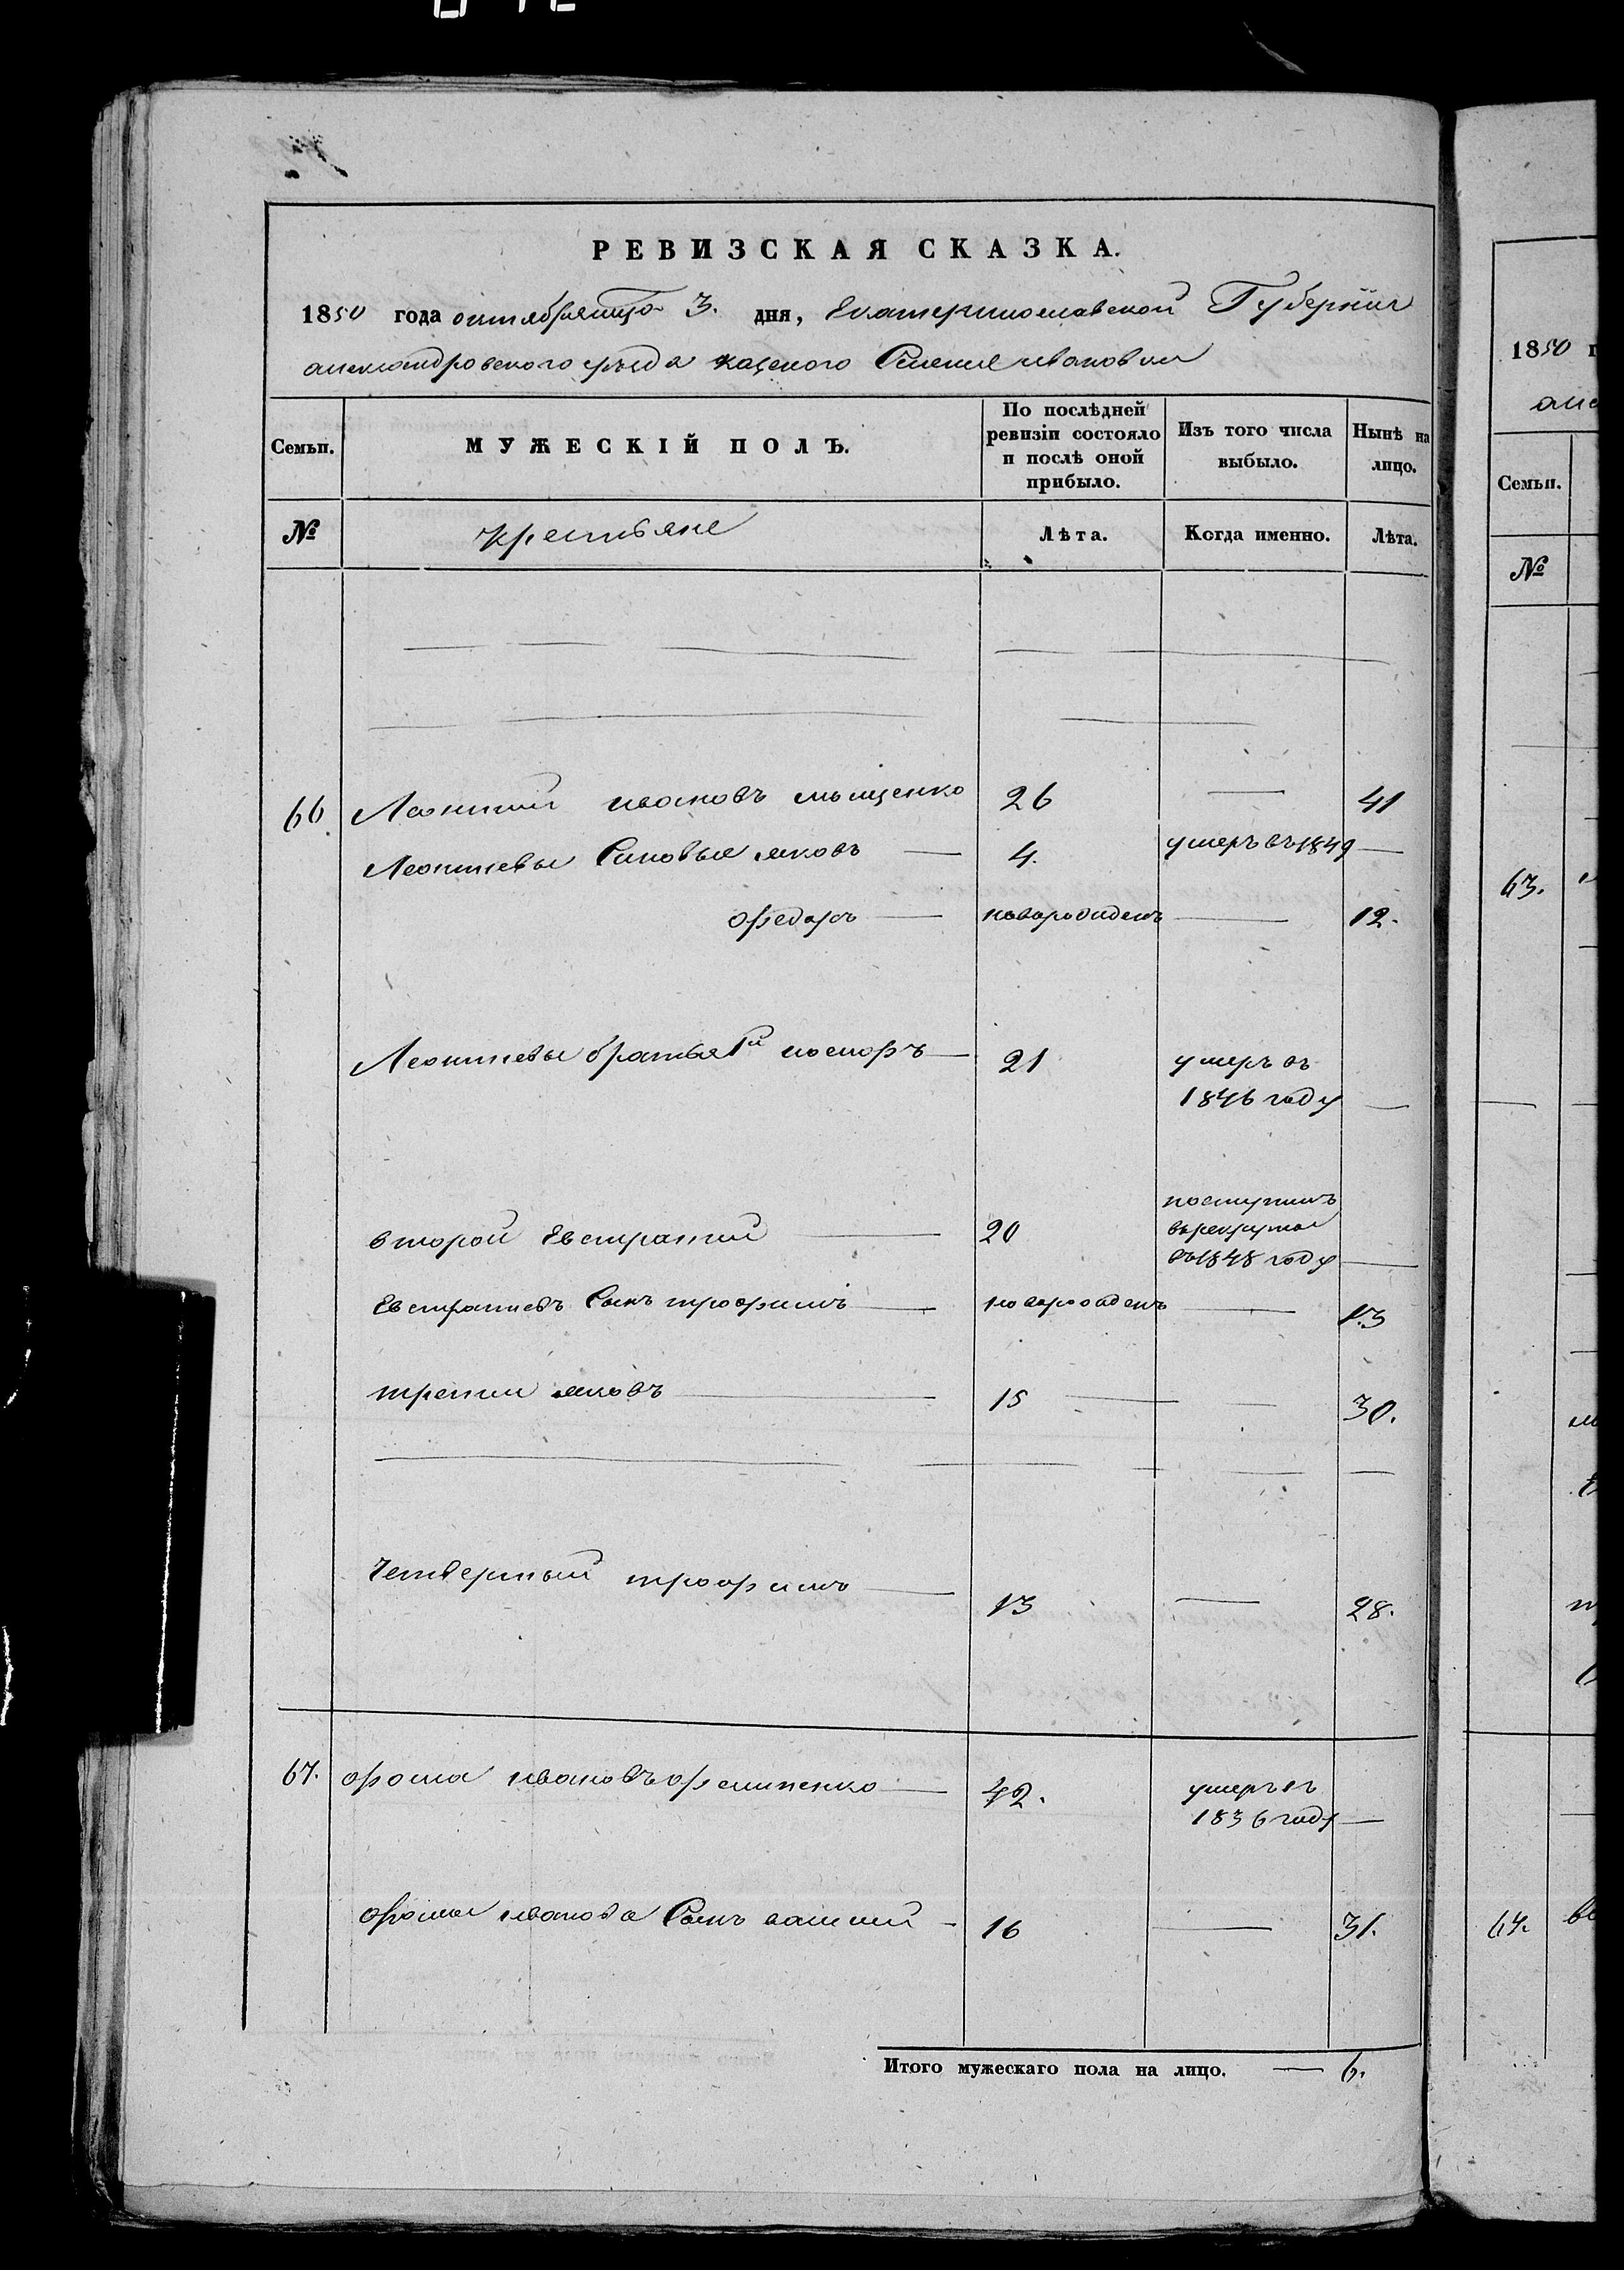 РЕВИЗСКАЯ СКАЗКА.
1850 года октября 3. дня, Екатеринославской Губернии
александровского уезда казеного Селения ивановки
Семьи. МУЖЕСКІЙ ПОЛЪ. По послѣдней ревизіи состояло и послѣ оной прибыло. Изъ того числа выбыло. Нынѣ на лицо.
№ крестьяне Лѣта. Когда именно. Лѣта.
66 Леонтий ивановъ мищенко 26 41
Леонтиевы Синовья яковъ 4. умеръ въ 1849
федоръ новорожденъ 12.
Леонтиевы братья 1й 21 умеръ въ
1846 году
второй Евстратий 20 поступилъ
врекруты
въ1848 году
Евстратиевъ Сынъ трофимъ новорожденъ 13
третий яковъ 15 30.
Четвертый трофимъ 13 28.
67. фома ивановъ 42. умеръ въ
1836 году
фомы иванова Сынъ 16 31.
Итого мужескаго пола на лицо. 6.
1850
Семьи.
№
63.
64.